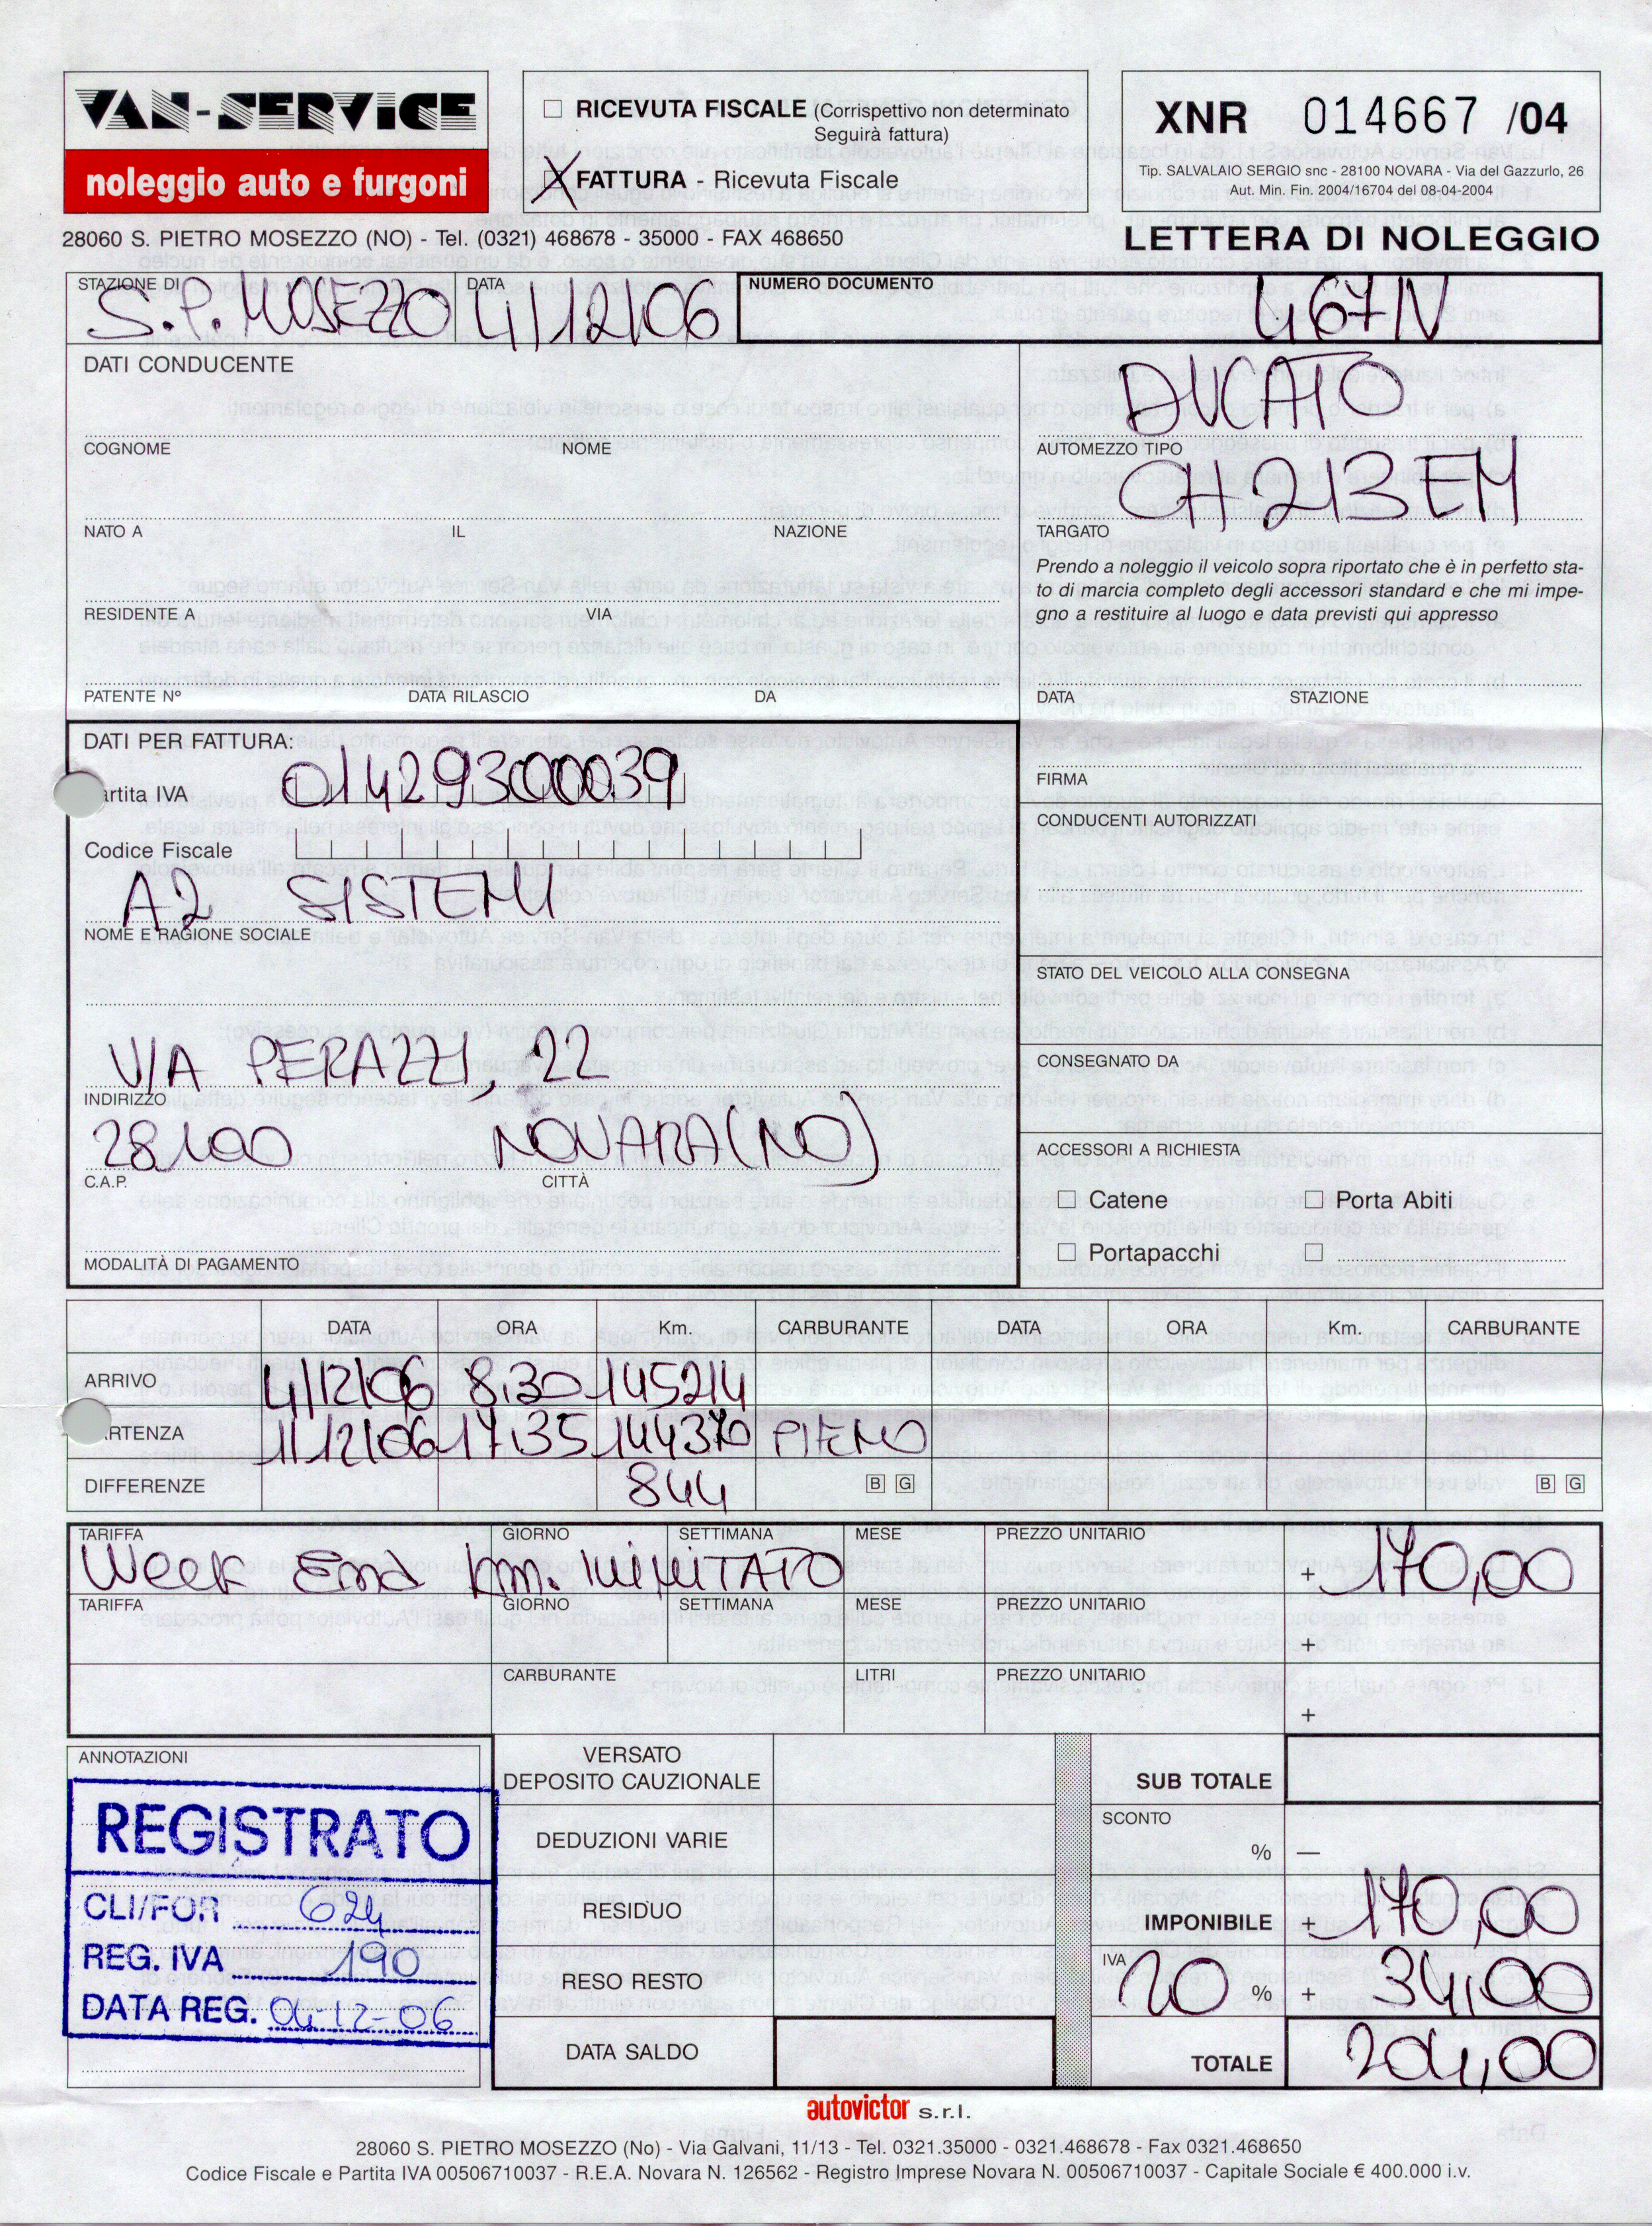 VAN-SERVICE
noleggio auto e furgoni
28060 S. PIETRO MOSEZZO (NO) - Tel. (0321) 468678 - 35000 - FAX 468650
RICEVUTA FISCALE (Corrispettivo non determinato
Seguirà fattura)
X FATTURA - Ricevuta Fiscale
XNR 014667 /04
Tip. SALVALAIO SERGIO snc - 28100 NOVARA - Via del Gazzurlo, 26
Aut. Min. Fin. 2004/16704 del 08-04-2004
LETTERA DI NOLEGGIO
STAZIONE DI S.P. MOSEZZO DATA 4/12/06 NUMERO DOCUMENTO 467N
DATI CONDUCENTE
COGNOME NOME
NATO A IL NAZIONE
RESIDENTE A VIA
PATENTE Nº DATA RILASCIO DA
DUCATO
AUTOMEZZO TIPO
CH213EM
TARGATO
Prendo a noleggio il veicolo sopra riportato che è in perfetto sta-
to di marcia completo degli accessori standard e che mi impe-
gno a restituire al luogo e data previsti qui appresso
DATA STAZIONE
FIRMA
CONDUCENTI AUTORIZZATI
STATO DEL VEICOLO ALLA CONSEGNA
CONSEGNATO DA
ACCESSORI A RICHIESTA
Catene Porta Abiti
Portapacchi
DATI PER FATTURA:
artita IVA 01429300039
Codice Fiscale
A2 SISTEMI
NOME E RAGIONE SOCIALE
VIA PERAZZI, 22
INDIRIZZO
28100 NOVARA (NO)
C.A.P. CITTÀ
MODALITÀ DI PAGAMENTO
DATA ORA Km. CARBURANTE DATA ORA Km. CARBURANTE
ARRIVO 4/12/06 8.30 145214
RTENZA 1/12/06 17.35 144370 PIENO
DIFFERENZE 844 B G B G
TARIFFA GIORNO SETTIMANA MESE PREZZO UNITARIO
Week End Km. ILLIMITATO + 170,00
TARIFFA GIORNO SETTIMANA MESE PREZZO UNITARIO
+
CARBURANTE LITRI PREZZO UNITARIO
+
ANNOTAZIONI
REGISTRATO
CLI/FOR 624
REG. IVA 190
DATA REG. 04-12-06
VERSATO
DEPOSITO CAUZIONALE
DEDUZIONI VARIE
RESIDUO
RESO RESTO
DATA SALDO
SUB TOTALE
SCONTO
% —
IMPONIBILE + 170,00
IVA 20 % + 34,00
TOTALE 204,00
autovictor s.r.l.
28060 S. PIETRO MOSEZZO (No) - Via Galvani, 11/13 - Tel. 0321.35000 - 0321.468678 - Fax 0321.468650
Codice Fiscale e Partita IVA 00506710037 - R.E.A. Novara N. 126562 - Registro Imprese Novara N. 00506710037 - Capitale Sociale € 400.000 i.v.